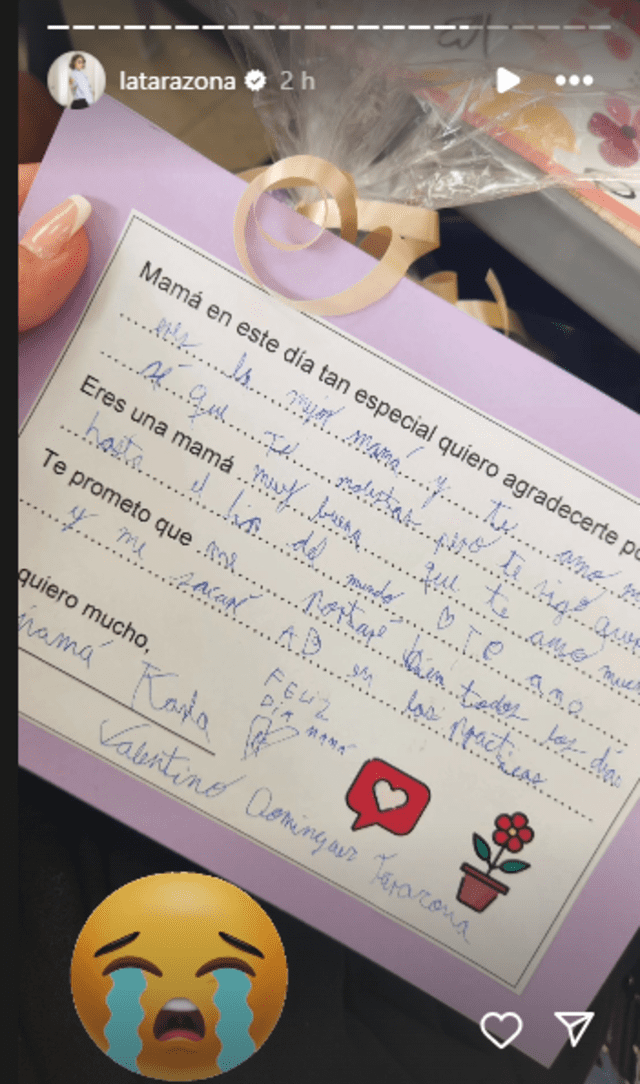 latarazona 2 h
Mamá en este día tan especial quiero agradecerte po
eres la mejor mamá y te amo m
sé que te molestas pero te sigo quer
Eres una mamá muy buena que te amo muc
hasta el fin del mundo TE amo
Te prometo que me portaré bien todos los días
y me sacaré AD en las practicas
quiero mucho,
mamá Karla
FELIZ
DIA MAMÁ
Valentino Dominguez Tarazona